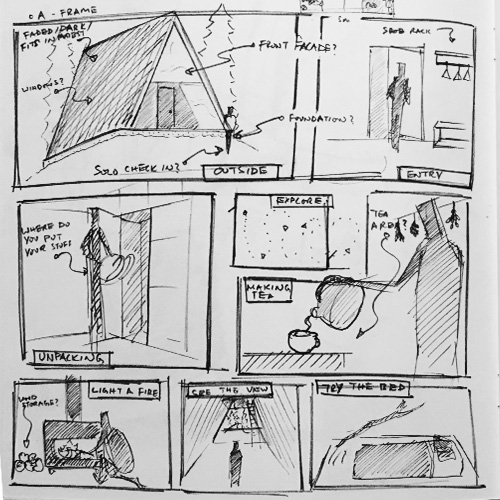 A-FRAME
FADED/DARK/
FITS IN FOREST
WINDOWS?
FRONT FACADE?
FOUNDATION?
SOLO CHECK IN?
OUTSIDE
RACK
ENTRY
WHERE DO
YOU PUT
YOUR STUFF
UNPACKING
EXPLORE
TEA
AREA?
MAKING
TEA
STORAGE?
LIGHT A FIRE
SEE THE VIEW
TRY THE BED